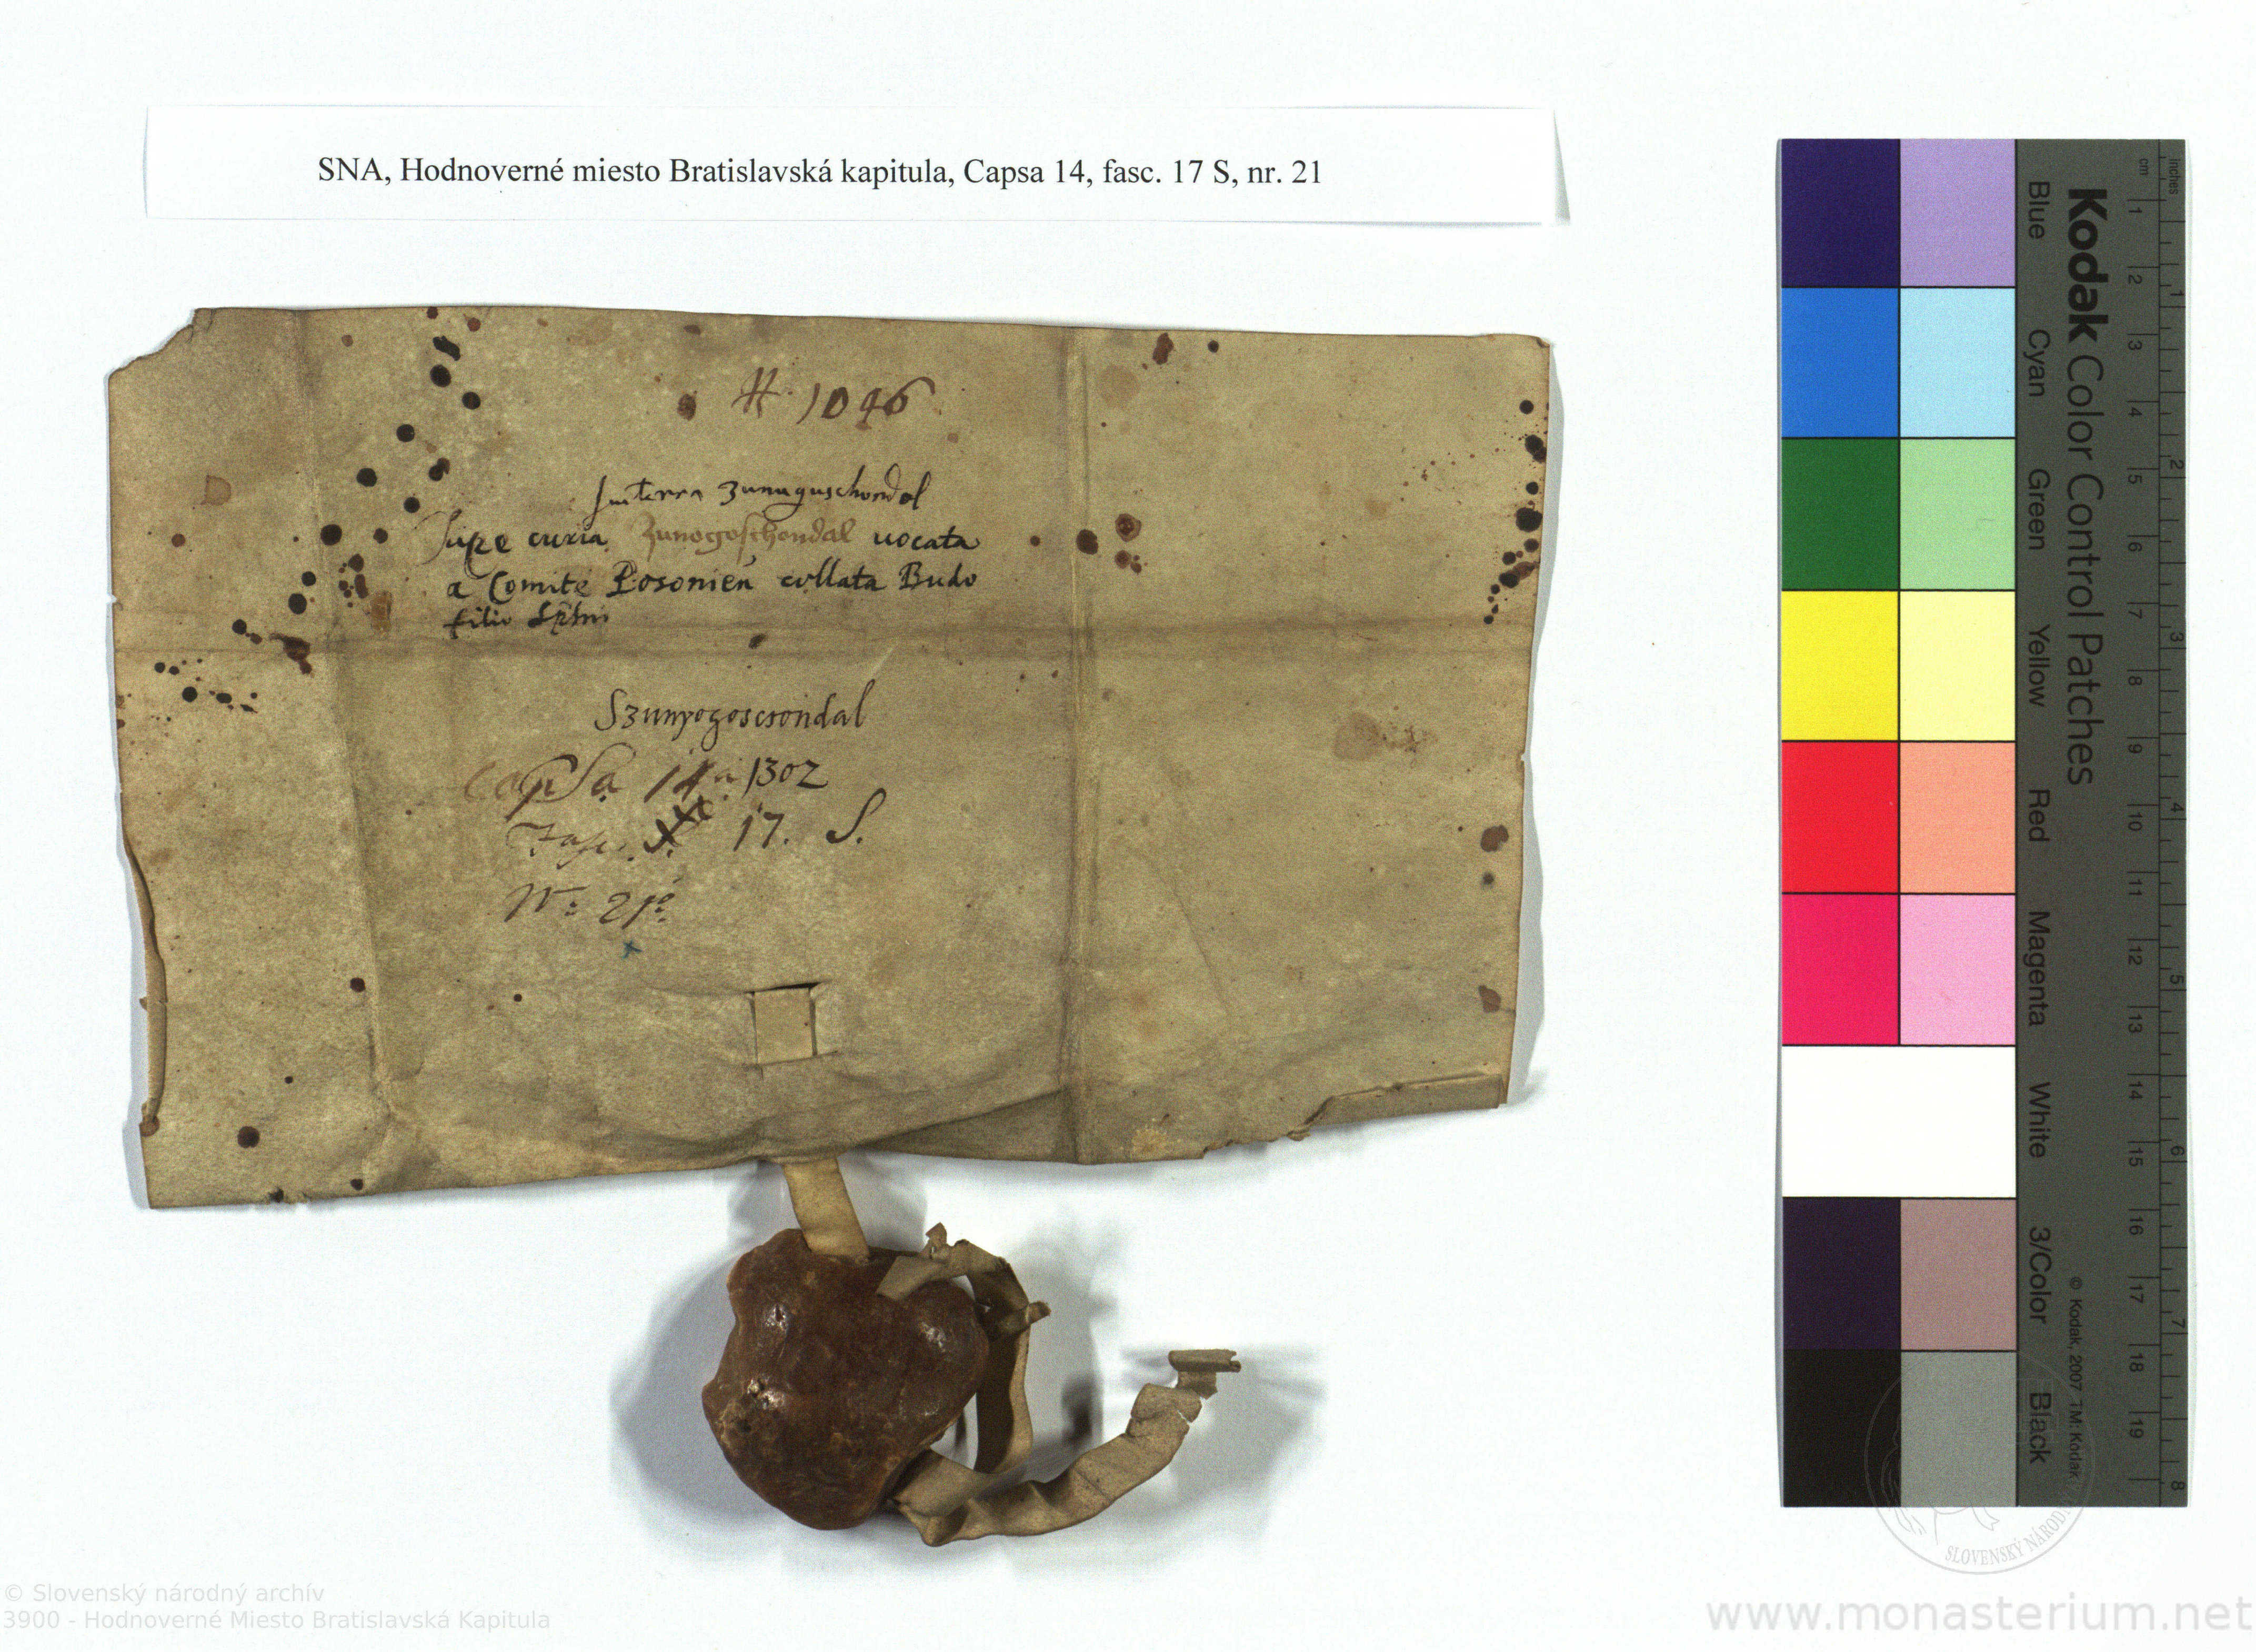 SNA, Hodnoverné miesto Bratislavská kapitula, Capsa 14, fasc. 17 S, nr. 21
# 1046
terra zunuguschondal
supe curia zunogoschondal uocata
a Comite Posonien collata Budo
filio
Szunyogoscsondal
Capsa 14a 1302
Fasc. 17. S.
No 21o
Kodak Color Control Patches
Blue Cyan Green Yellow Red Magenta White 3/Color Black
© Kodak, 2007 TM: Kodak
cm 1 2 3 4 5 6 7 8 9 10 11 12 13 14 15 16 17 18 19
inches 1 2 3 4 5 6 7 8
SLOVENSKÝ NÁROD
© Slovenský národný archív
3900 - Hodnoverné Miesto Bratislavská Kapitula
www.monasterium.net